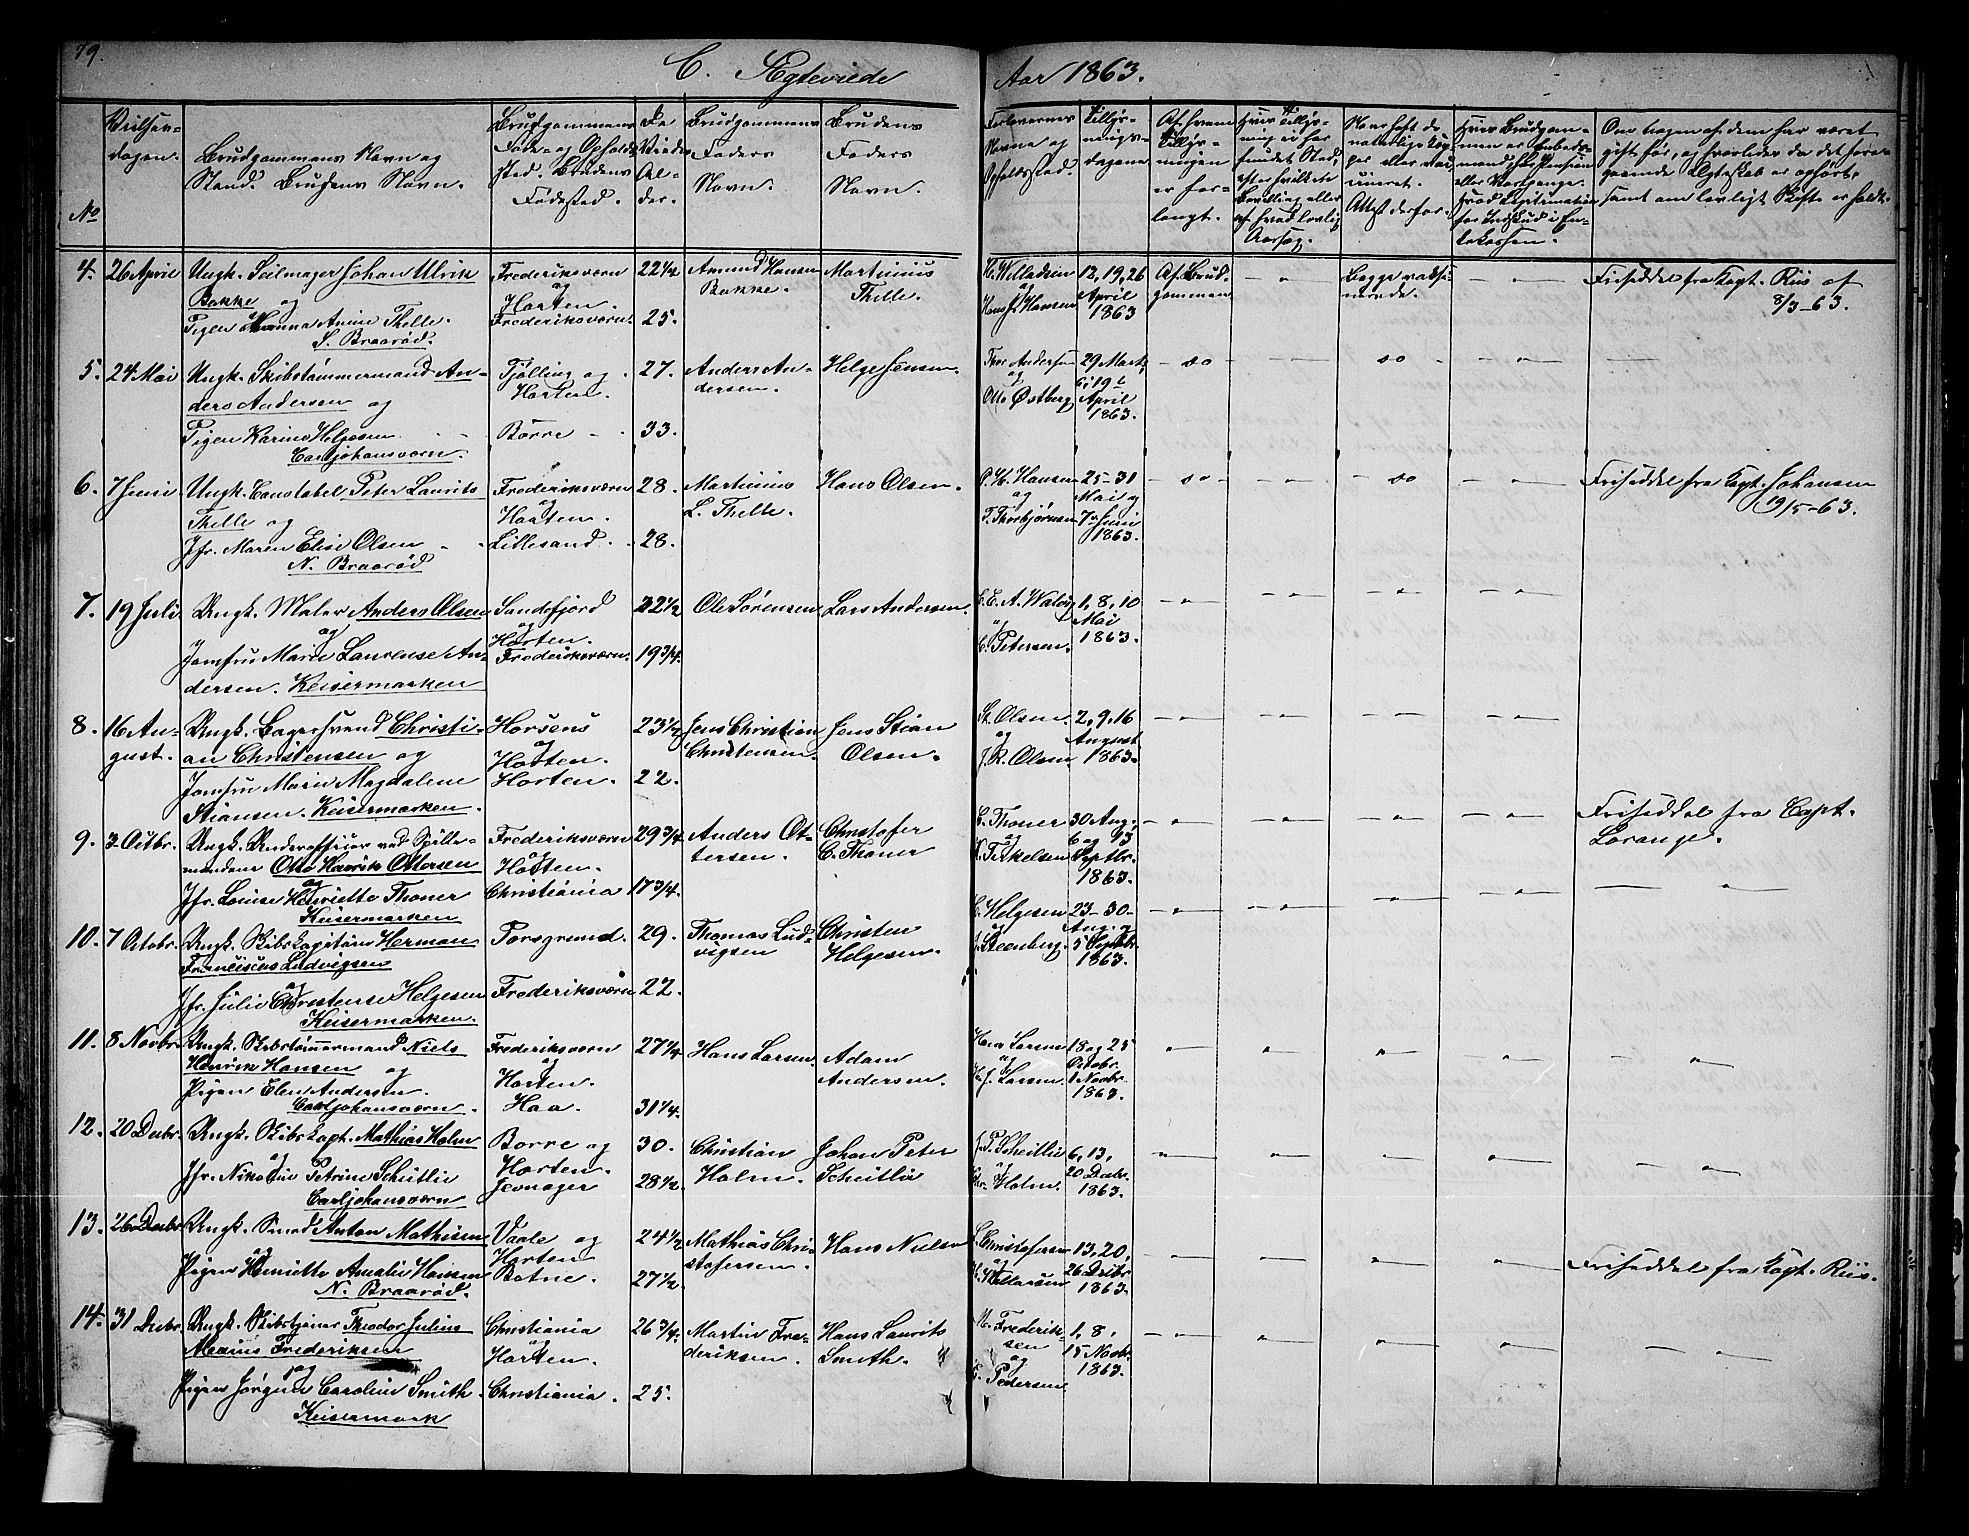 79.
C. Ægteviede
Aar 1863.
No
Vielsesdagen.
Brudgommens Navn og
Stand. Brudens Navn.
Brudgommens
Føde og Opholds
sted. Brudens
Fødested.
De
Viedes
Al-
der.
Brudgommens
Faders
Navn.
Brudens
Faders
Navn.
Forlovernes
Navne og
Opholdssted.
Tillys-
nings-
dagene
Af hvem
Tillys-
ningen
er for-
langt.
4. 26 April Ungk. Seilmager Johan Ulrik
Bakke og
Pigen Hanna Amine Thelle.
S. Braarød.
Frederiksværn
og
Horten.
Frederiksværn.
22 1/4
25.
Amund Hansen
Bakke.
Martinius
Thelle.
N. Willadsen
og
Hans J. Hansen
12, 19, 26
April
1863
Af Brud-
gommen
Begge vaksi-
nerede.
Friseddel fra Capt. Riis af
8/3-63.
5. 24 Mai Ungk. Skibstømmermand An-
ders Andersen og
Pigen Karine Helgesen
Carljohansværn.
Tjølling og
Horten.
Borre
27.
33.
Anders An-
dersen.
Helge Jensen.
Thor Andersen
og
Otto Østberg
29 Marts
6 i 19 i
April
1863.
so
so
6. 7 Juni Ungk. Constabel Peter Laurits
Thelle og
Jfr. Maren Elise Olsen
N. Braarød
Frederiksværn
og
Horten.
Lillesand.
28.
28.
Martinius
L. Thelle.
Hans Olsen.
P. H. Hansen
og
T. Thorbjørnsen
25-31
Mai og
7 Juni
1863.
so
so
Friseddel fra Capt. Johansen
19/5-63.
7. 19 Juli Ungk. Maler Anders Olsen
og
Jomfru Marie Laurense An-
dersen. Keisermarken
Sandefjord
og
Horten.
Frederiksværn.
22 1/2
19 3/4.
Ole Sørensen
Lars Andersen.
og
C. Petersen.
1, 8, 10
Mai
1863.
8. 16 Au-
gust.
Ungk. Bagersvend Christi-
an Christensen og
Jomfru Marie Magdalene
Stiansen. Keisermarken.
Horsens
og
Horten.
Horten.
23 1/2
22.
Jens Christian
Christensen.
Jens Stian
Olsen.
St. Olsen.
og
J. R. Olsen
2, 9, 16
August
1863.
9. 3 Octbr. Ungk. Underofficier ved Spille-
mændene Otto Henrik Ottersen
og
Jfr. Louise Henriette Thoner
Keisermarken
Frederiksværn
og
Horten.
Christiania
29 3/4.
17 3/4.
Anders Ot-
tersen.
Christofer
C. Thoner
C. Thoner
og
K. Terkelsen
30 Aug.
6 og 13
Septbr.
1863.
Friseddel fra Capt.
Lorange.
10. 7 Octobr. Ungk. Skibskapitain Herman
Franciscus Ludvigsen
og
Jfr. Julie Christense Helgesen
Keisermarken.
Porsgrund.
Frederiksværn
29.
22.
Thomas Lud-
vigsen
Christen
Helgesen.
C. Helgesen
og
J. Steenberg.
23-30-
Aug. og
5 Septbr.
1863.
11. 8 Novbr. Ungk. Skibstømmermand Niels
Henrik Hansen og
Pigen Elen Andersen.
Carljohansværn.
Frederiksværn
og
Horten.
Haa.
27 1/4
31 1/4.
Hans Larsen.
Adam
Andersen.
Hans Larsen
og
H. J. Larsen.
18 og 25
Octobr.
1 Novbr.
1863.
12. 20 Decbr. Ungk. Skibskapt. Mathias Holm
og
Jfr. Nikoline Petrine Scheitlie
Carljohansværn
Borre og
Horten.
Jevnager
30.
28 1/2
Christian
Holm.
Johan Peter
Scheitlie
J. P. Scheitlie
og
Chr. Holm.
6, 13,
20 Decbr.
1863.
13. 26 Decbr. Ungk. Smed Anton Mathisen
og
Pigen Henriette Amalie Hansen
N. Braarød.
Vaale og
Horten
Botne.
24 1/2
27 1/2
Mathias Chri-
stofersen.
Hans Nielsen
L. Christofersen
og
13, 20,
26 Decbr.
1863.
Friseddel fra Capt. Riis.
14. 31 Decbr. Ungk. Skibstjener Theodor Julius
Alexius Frederiksen
og
Pigen Jørgine Caroline Smith.
Keisermark
Christiania
og
Horten.
Christiania.
26 3/4.
25.
Martin Fre-
deriksen.
Hans Laurits
Smith.
N. Frederik-
sen
og
C. Pedersen
1, 8,
15 Novbr.
1863.